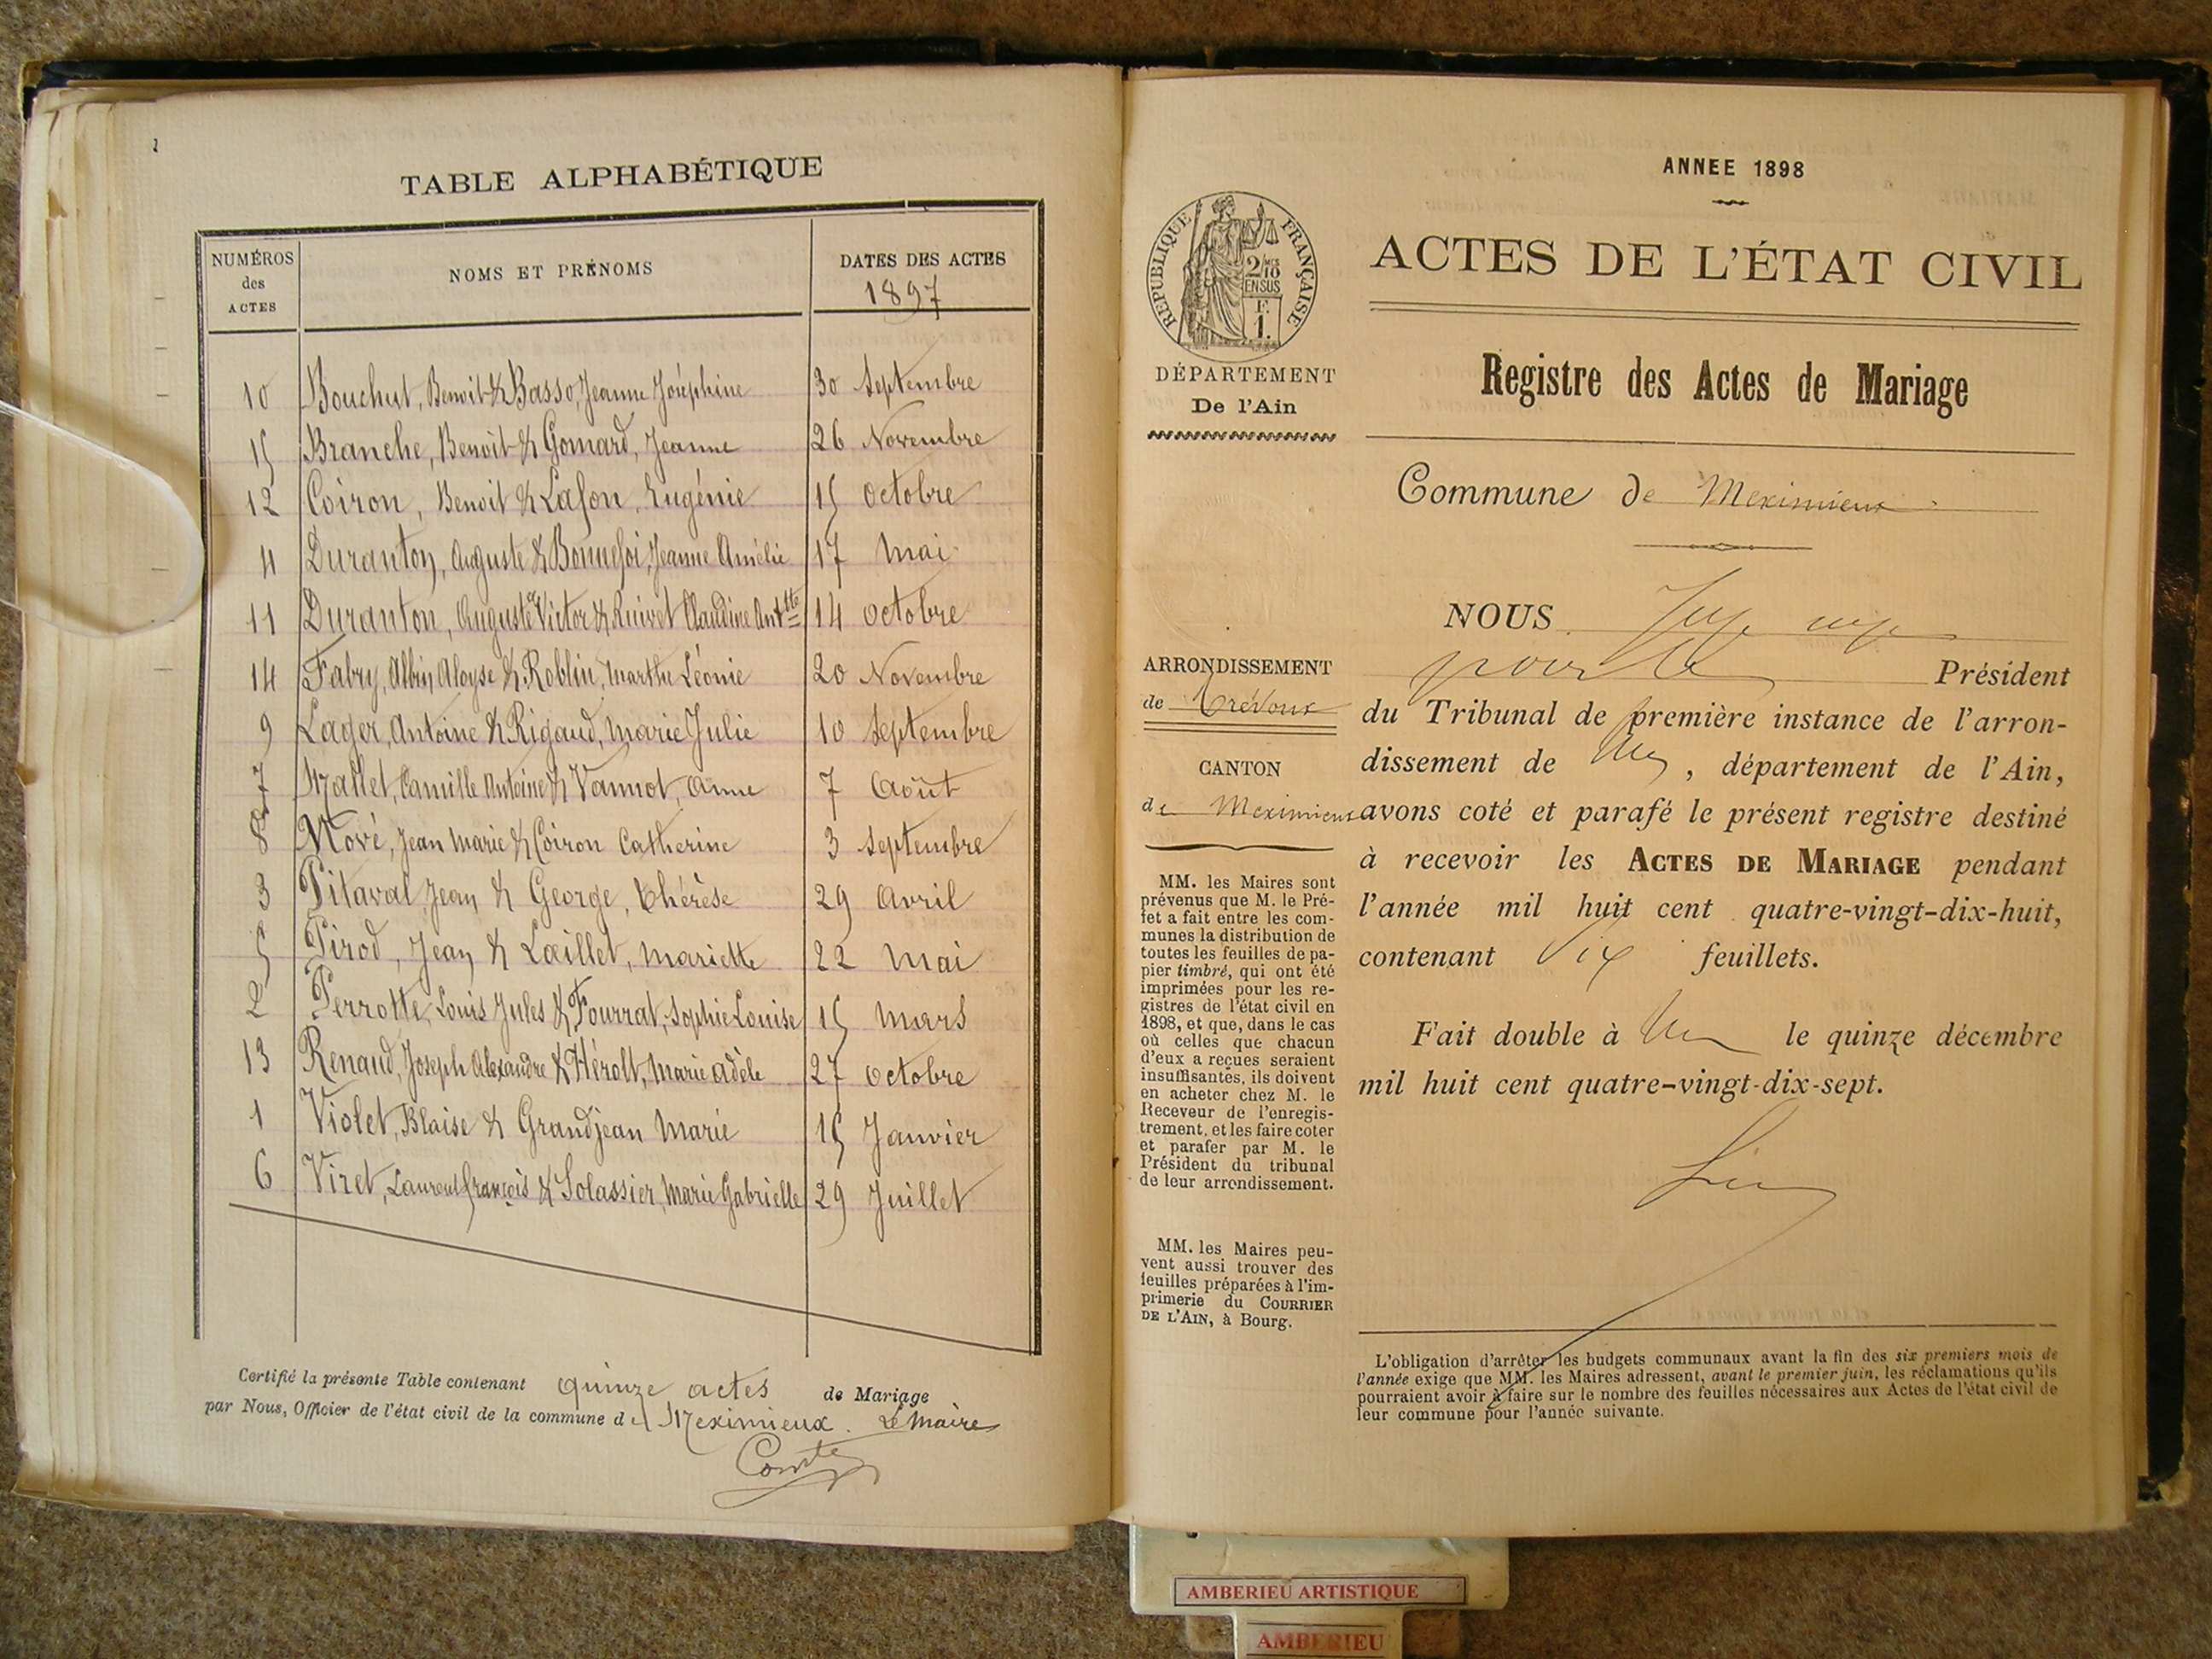 TABLE ALPHABÉTIQUE
NUMÉROS
des
ACTES
NOMS ET PRÉNOMS
DATES DES ACTES
1897
10 Bouchut, Benoit & Basso, Jeanne Joséphine 30 Septembre
15 Branche, Benoit & Gomard, Jeanne 26 Novembre
12 Coiron, Benoit & Lafon, Eugénie 15 Octobre
4 Duranton, Auguste & Bonnefoi, Jeanne Amélie 17 Mai
11 Duranton, Auguste Victor & Ruivet Claudine Antte 14 Octobre
14 Fabry, Albin Aloyse & Roblin, Marthe Léonie 20 Novembre
9 Lager, Antoine & Rigaud, Marie Julie 10 Septembre
7 Mallet, Camille Antoine & Vannot, Anne 7 Août
8 Nové, Jean Marie & Coiron Catherine 3 Septembre
3 Pitaval Jean & George, Thérèse 29 Avril
5 Pirod, Jean & Lœillet, Mariette 22 Mai
2 Perrotte, Louis Jules & Fourrat, Sophie Louise 15 Mars
13 Renaud, Joseph Alexandre & Hérolt, Marie Adèle 27 Octobre
1 Violet, Blaise & Grandjean Marie 15 Janvier
6 Viret, Laurent François & Solassier, Marie Gabrielle 29 Juillet
Certifié la présente Table contenant quinze actes de Mariage
par Nous, Officier de l'état civil de la commune de Meximieux. Le Maire
Comte
ANNEE 1898
RÉPUBLIQUE FRANÇAISE
2/10
EN SUS
F.
1.
DÉPARTEMENT
De l'Ain
ARRONDISSEMENT
de Trévoux
CANTON
de Meximieux
MM. les Maires sont
prévenus que M. le Pré-
fet a fait entre les com-
munes la distribution de
toutes les feuilles de pa-
pier timbré, qui ont été
imprimées pour les re-
gistres de l'état civil en
1898, et que, dans le cas
où celles que chacun
d'eux a reçues seraient
insuffisantes, ils doivent
en acheter chez M. le
Receveur de l'enregis-
trement, et les faire coter
et parafer par M. le
Président du tribunal
de leur arrondissement.
MM. les Maires peu-
vent aussi trouver des
feuilles préparées à l'im-
primerie du COURRIER
DE L'AIN, à Bourg.
ACTES DE L'ÉTAT CIVIL
Registre des Actes de Mariage
Commune de Meximieux
NOUS
pour le Président
du Tribunal de première instance de l'arron-
dissement de , département de l'Ain,
avons coté et parafé le présent registre destiné
à recevoir les ACTES DE MARIAGE pendant
l'année mil huit cent quatre-vingt-dix-huit,
contenant feuillets.
Fait double à le quinze décembre
mil huit cent quatre-vingt-dix-sept.
L'obligation d'arrêter les budgets communaux avant la fin des six premiers mois de
l'année exige que MM. les Maires adressent, avant le premier juin, les réclamations qu'ils
pourraient avoir à faire sur le nombre des feuilles nécessaires aux Actes de l'état civil de
leur commune pour l'année suivante.
AMBERIEU ARTISTIQUE
AMBERIEU